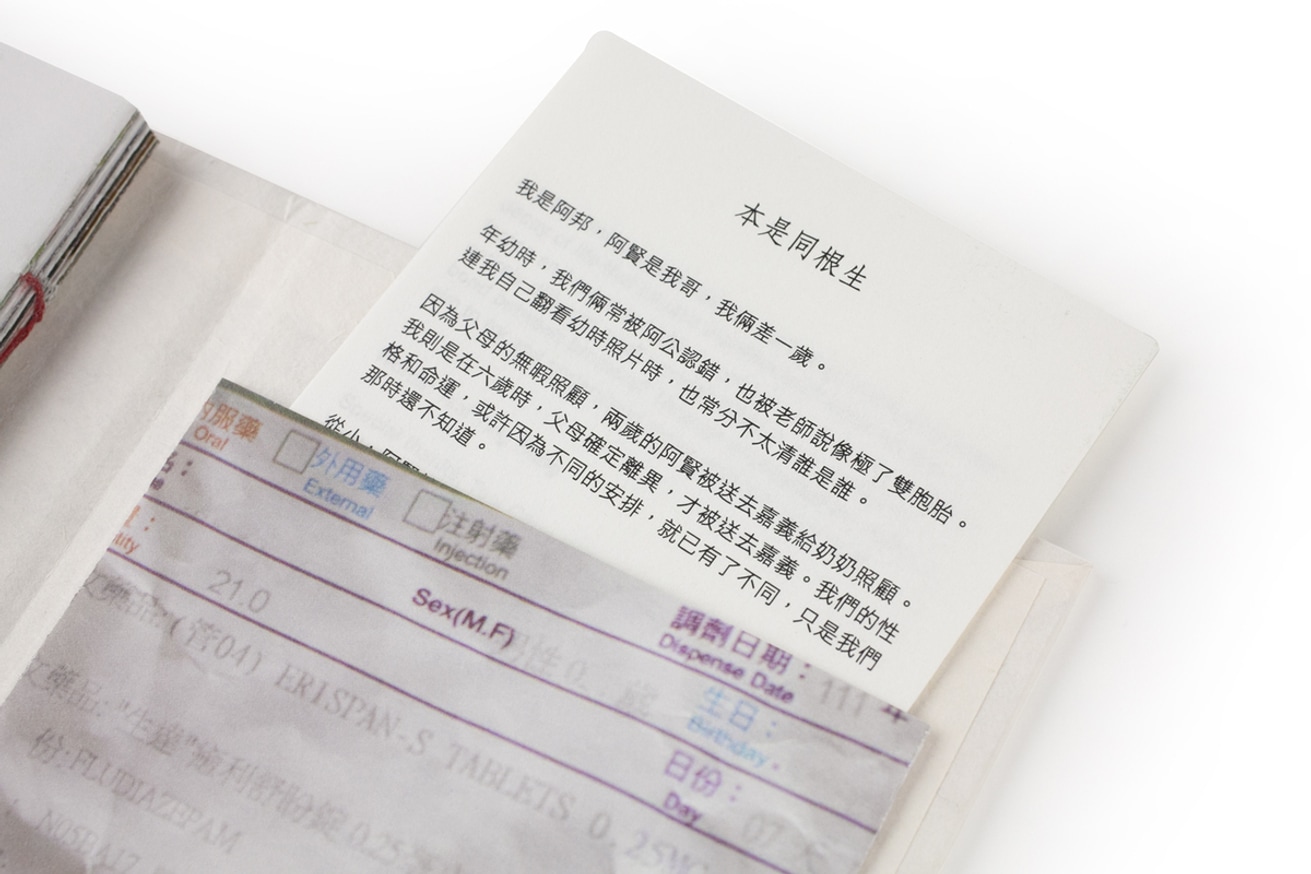 本是同根生
我是阿邦，阿賢是我哥，我倆差一歲。
年幼時，我們倆常被阿公認錯，也被老師說像極了雙胞胎。
連我自己翻看幼時照片時，也常分不太清誰是誰。
因為父母的無暇照顧，兩歲的阿賢被送去嘉義給奶奶照顧。
我則是在六歲時，父母確定離異，才被送去嘉義。我們的性
格和命運，或許因為不同的安排，就已有了不同，只是我們
那時還不知道。
從小，阿賢
服藥 外用藥 注射藥
Oral External Injection
調劑日期：111 年
Sex(M.F) Dispense Date
21.0 性 0. 歲 生日：
Birthday.
文藥品:(管04) ERISPAN-S TABLETS 0.25MG
日份：
Day 07
文藥品:"生達" 愉利舒 錠 0.25
份:FLUDIAZEPAM
N05BA17